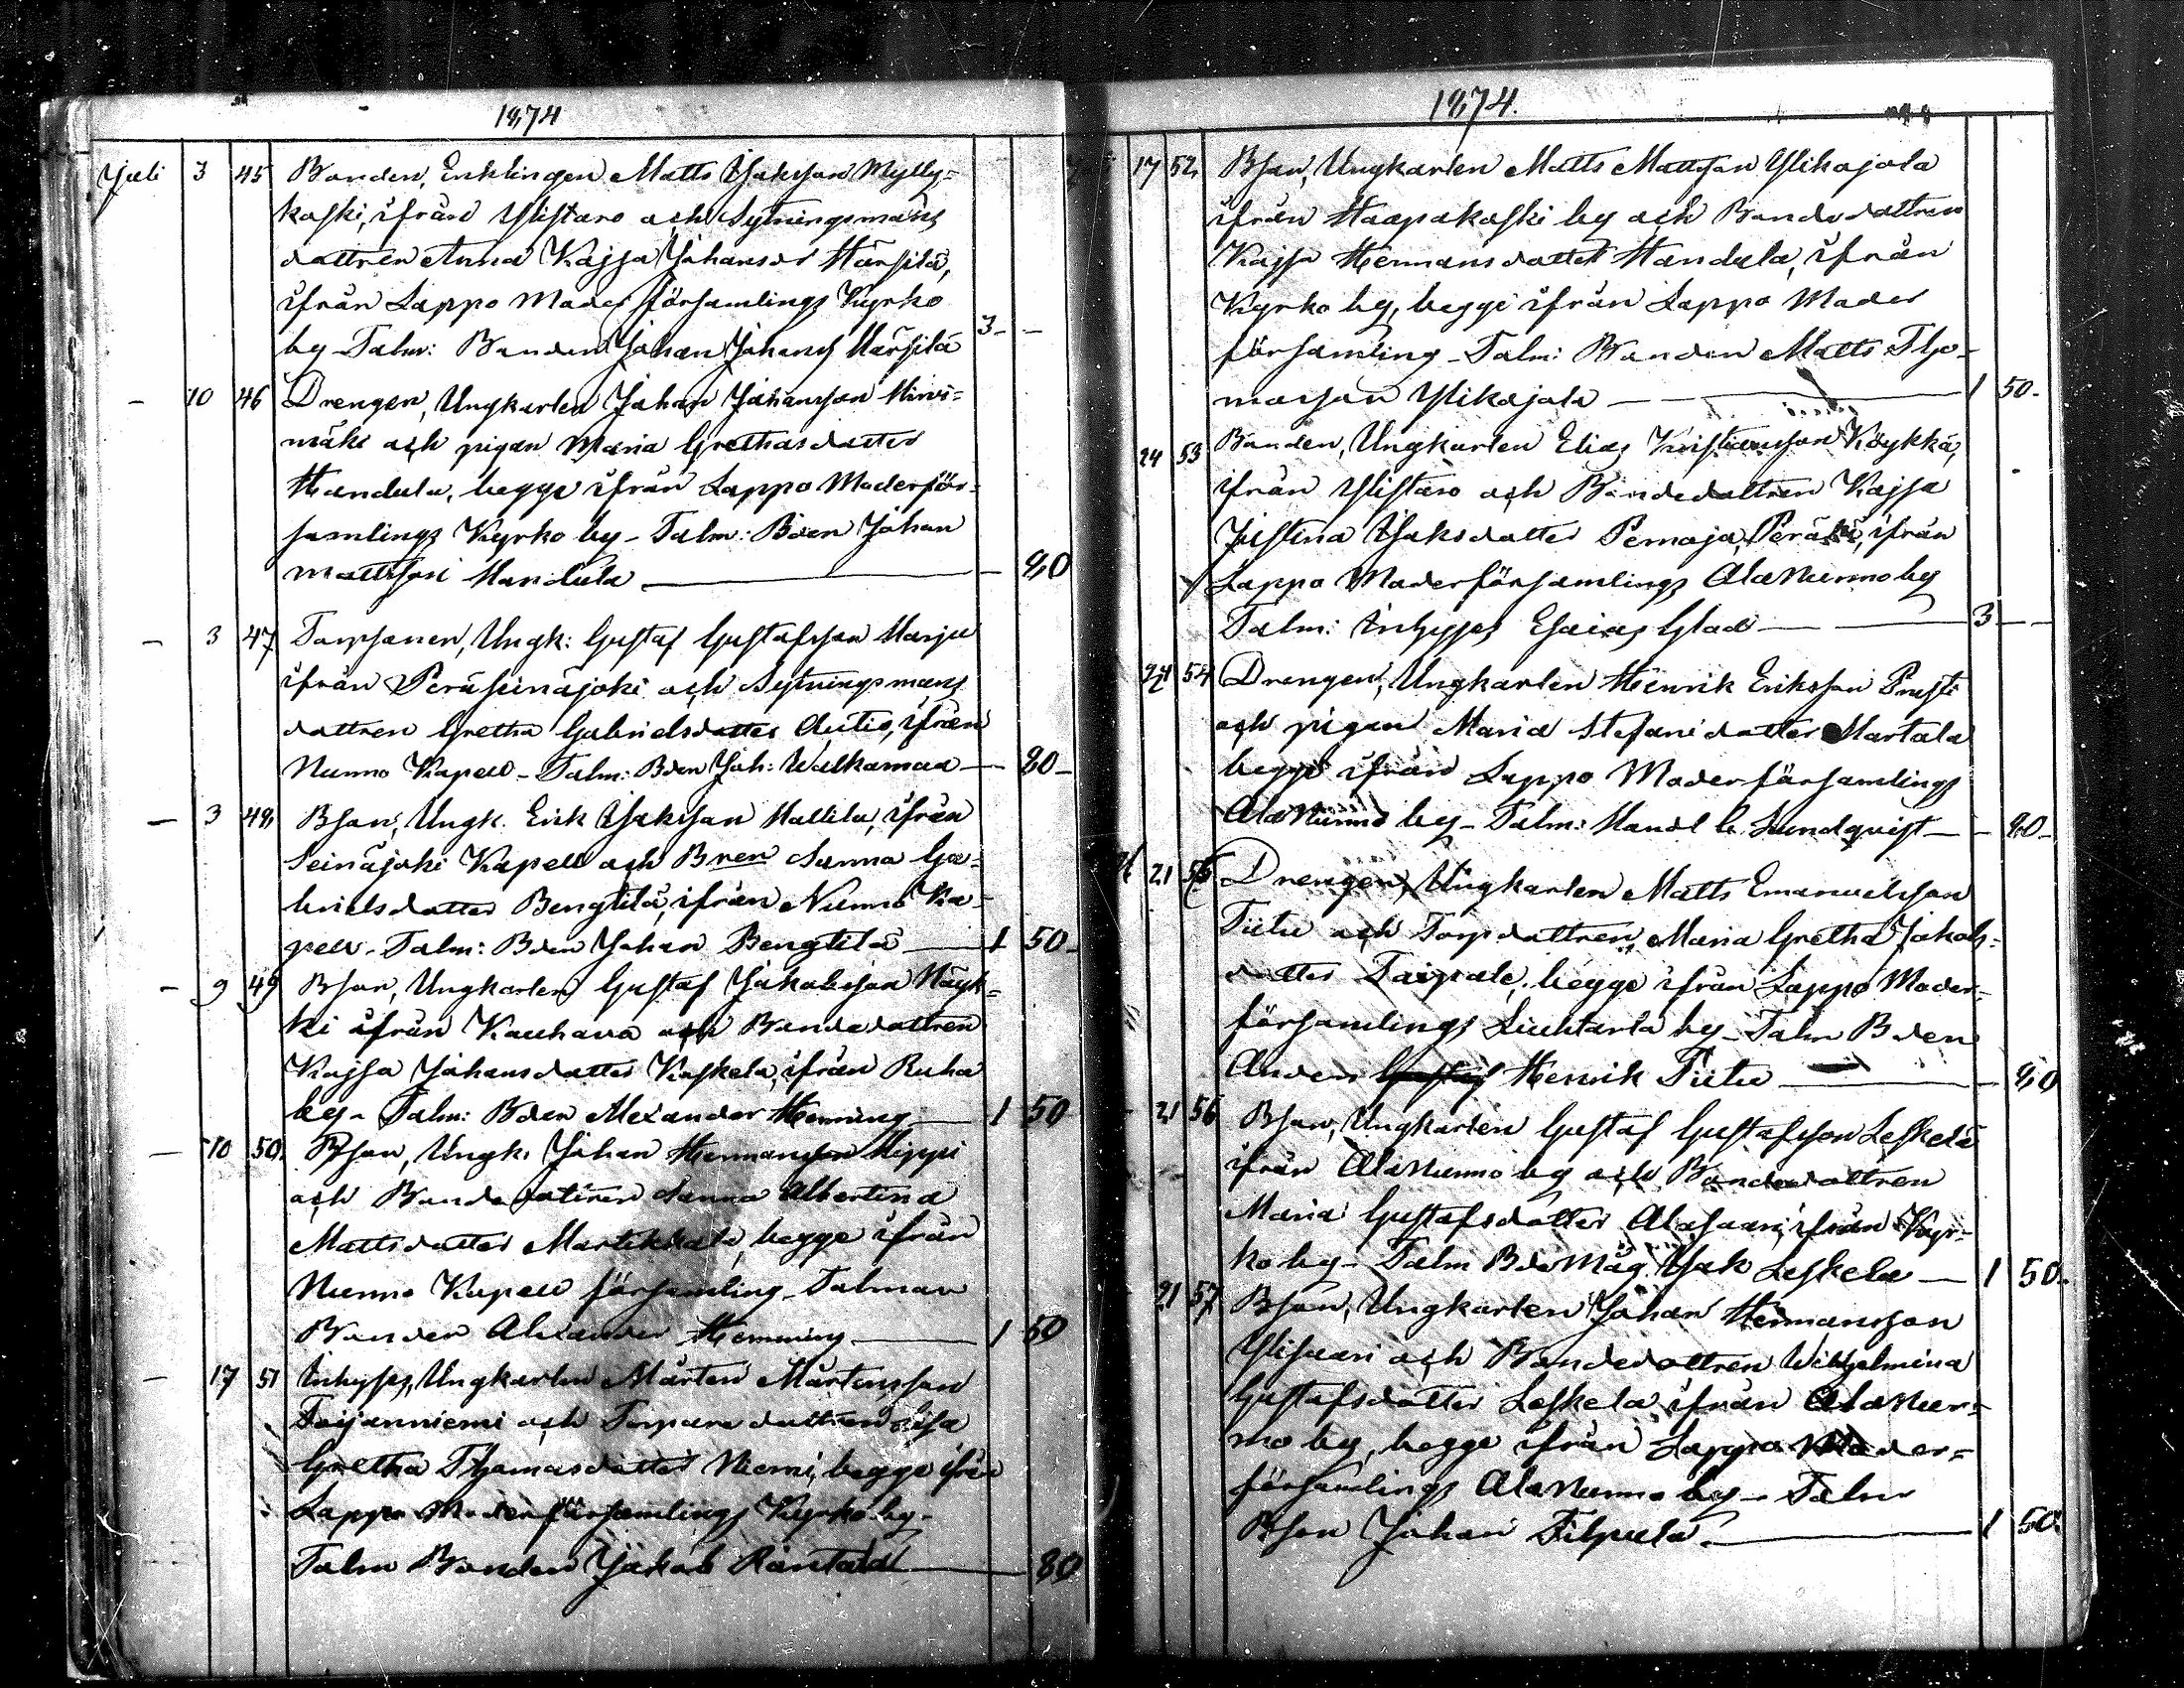 1874
Juli 3 45 Bonden, Enklingen Matts Isaksson Mylly=
koski, ifrån Ylistaro och Sytningsmans
dattren Anna Kajsa Johansdr Härsilä,
ifrån Lappo Moder församlings Kyrko
by - Talm: Bonden Johan Johans Härsilä 3 - -
- 10 46 Drengen, Ungkarlen Johan Johansson Hirvi=
mäki och pigan Maria Grethasdotter
Handula, begge ifrån Lappo Moderför=
samlings Kyrko by - Talm: Bden Johan
Mattsson Handula - 80
- 3 47 Torpsonen, Ungk: Gustaf Gustafsson Harju
ifrån Peräseinäjoki och Sytningsmans
dattren Gretha Gabrielsdotter Autio, ifrån
Nurmo Kapell - Talm: Bden Joh: Walkamaa - 80 -
- 3 48 Bson, Ungk. Erik Isaksson Hallila, ifrån
Seinäjoki Kapell och Bren Sanna Ga=
brielsdotter Bengtilä, ifrån Nurmo Ka=
pell - Talm: Bden Johan Bengtilä 1 50 -
- 9 49 Bson, Ungkarlen Gustaf Jakobsson Näyk=
ki ifrån Kauhava och Bondedottren
Kajsa Johansdotter Koskela, ifrån Ruha
by - Talm: Bden Alexander Hemming 1 50
- 10 50. Bson, Ungk. Johan Hermansson Hippi
och Bondedottren Sanna Albertina
Mattsdotter Martikkala, begge ifrån
Nurmo Kapell församling - Talman
Bonden Alexander Hemming 1 50
- 17 51 Inhyses, Ungkarlen Mårten Mårtensson
Toijanniemi och Torparedottren Lisa
Gretha Thomasdotter Niemi, begge ifrån
Lappo Moderförsamlings Kyrko by -
Talm Bonden Jakob Rantala 80
1874.
17 52 Bson, Ungkarlen Matts Mattsson Ylikojola
ifrån Haapakoski by och Bondedottren
Kajsa Hermansdotter Handula, ifrån
Kyrko by, begge ifrån Lappo Moder
församling - Talm: Bonden Matts Tho-
masson Ylikojola 1 50 -
24 53 Bonden, Ungkarlen Elias Kristiansson Köykkä,
ifrån Ylistaro och Bondedottren Kajsa
Justina Isaksdotter Pernaja, ifrån
Lappo Moderförsamlings AlaNurmo by
Talm: Inhyses Esaias Glad 3 - -
24 54 Drengen, Ungkarlen Henrik Eriksson Prusti
och pigan Maria Stefanidotter Martala
begge ifrån Lappo Moderförsamlings
AlaNurmo by - Talm: Handl G. Sundqvist - 80 -
21 55 Drengen, Ungkarlen Matts Emanuelsson
Tiitu och Torpdottren Maria Gretha Jakobs=
dotter Taipale, begge ifrån Lappo Moder=
församlings Liuhtarla by - Talm Bden
Anders Gustaf Henrik Tiitu - 80
21 56 Bson, Ungkarlen Gustaf Gustafsson Leskelä
ifrån AlaNurmo by och Bondedottren
Maria Gustafsdotter Alasaari, ifrån Kyr=
ko by - Talm Bde Måg Isak Leskelä 1 50 -
21 57 Bson, Ungkarlen Johan Hermansson
Ylisaari och Bondedottren Wilhelmina
Gustafsdotter Leskelä ifrån AlaNur=
mo by, begge ifrån Lappo Moder=
församlings AlaNurmo by - Talm
Bson Johan Filpula 1 50